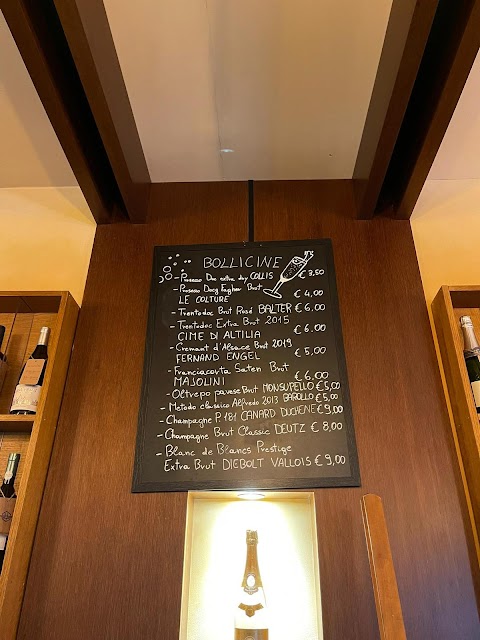 BOLLICINE
- Prosecco Doc extra dry COLLIS € 3,50
- Prosecco Docg Fagher Brut
LE COLTURE € 4,00
- Trentodoc Brut Rosé BALTER € 6,00
- Trentodoc Extra Brut 2015
CIME DI ALTILIA € 6,00
- Cremant d'Alsace Brut 2019
FERNAND ENGEL € 5,00
- Franciacorta Saten Brut
MAJOLINI € 6,00
- Oltrepo pavese Brut MONSUPELLO € 5,00
- Metodo classico Alfredo 2013 BAROLLO € 5,00
- Champagne P. 181 CANARD DUCHENE € 9,00
- Champagne Brut Classic DEUTZ € 8,00
- Blanc de Blancs Prestige
Extra Brut DIEBOLT VALLOIS € 9,00